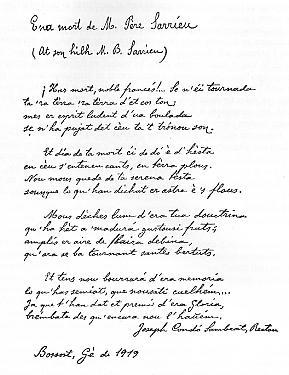 Ena mort de M. Père Sarrieu
(At son hilh M. B. Sarrieu)
¡Hus mort, noble francés!... Se n'éi tournada
ta 'ra tèrra 'ra tèrra d'et cos ton,
mes er esprit ludent d'ua boulada
se n'ha pujat det cèu ta't trònou son.
Et dia de ta mort ei de dò è d'hèsta
en cèu s'entenen cants, en tèrra plous.
Nou mous quede de ta serena testa
sounque lo qu'han dechut er astre è flous.
Mous dèches lum d'era tua douctrina
qu'ha hèt a madura goustousi fruts;
amplís er aire de flaira debina,
qu'ara se ba tournant santes bertuts.
Et tens nou bourrará d'era memoria
lo qu'has semiat, que nousati cuelhem...
Ja que t'han dat et premi d'era gloria,
trembate des qu'encara nou l'hattem.
Joseph Condó Sambeat, Rector
Bossost, Gé de 1919